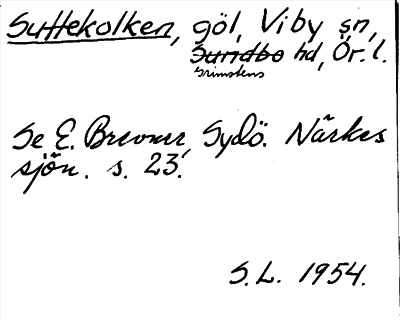 Suttekolken, göl, Viby sn,
Sundbo hd, Ör. l.
Grimstens
Se E. Brevner, Sydö. Närkes
sjön. s. 23.
S.L. 1954.